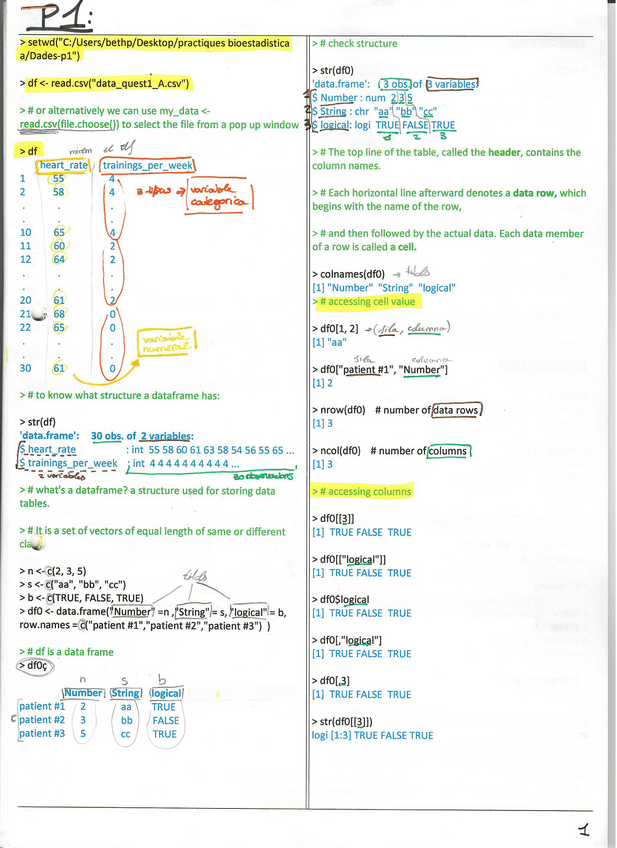 P1:
> setwd("C:/Users/bethp/Desktop/practiques bioestadistic
a/Dades-p1")
> df <- read.csv("data_quest1_A.csv")
> # or alternatively we can use my_data <-
read.csv(file.choose()) to select the file from a pop up window
> df
el df
heart_rate trainings_per_week
1 55 4
2 58 4
. . .
. . .
10 65 4
11 60 2
12 64 2
. . .
. . .
20 61 2
21 68 0
22 65 0
. . .
. . .
30 61 0
3 tipus → variable
categorica
variable
numeral
> # to know what structure a dataframe has:
> str(df)
'data.frame': 30 obs. of 2 variables:
$ heart_rate : int 55 58 60 61 63 58 54 56 55 65 ...
$ trainings_per_week : int 4 4 4 4 4 4 4 4 4 4 ...
2 variables 30 observacions
> # what's a dataframe? a structure used for storing data
tables.
> # It is a set of vectors of equal length of same or different
> n <- c(2, 3, 5)
> s <- c("aa", "bb", "cc")
> b <- c(TRUE, FALSE, TRUE)
títols
> df0 <- data.frame("Number" =n ,"String" = s, "logical" = b,
row.names = c("patient #1","patient #2","patient #3") )
> # df is a data frame
> df0ç
n s b
Number String logical
patient #1 2 aa TRUE
c patient #2 3 bb FALSE
patient #3 5 cc TRUE
> # check structure
> str(df0)
'data.frame': 3 obs. of 3 variables:
1 $ Number : num 2 3 5
2 $ String : chr "aa" "bb" "cc"
3 $ logical: logi TRUE FALSE TRUE
1 2 3
> # The top line of the table, called the header, contains the
column names.
> # Each horizontal line afterward denotes a data row, which
begins with the name of the row,
> # and then followed by the actual data. Each data member
of a row is called a cell.
> colnames(df0) → títols
[1] "Number" "String" "logical"
> # accessing cell value
> df0[1, 2] → (fila, columna)
[1] "aa"
fila columna
> df0["patient #1", "Number"]
[1] 2
> nrow(df0) # number of data rows
[1] 3
> ncol(df0) # number of columns
[1] 3
> # accessing columns
> df0[[3]]
[1] TRUE FALSE TRUE
> df0[["logical"]]
[1] TRUE FALSE TRUE
> df0$logical
[1] TRUE FALSE TRUE
> df0[,"logical"]
[1] TRUE FALSE TRUE
> df0[,3]
[1] TRUE FALSE TRUE
> str(df0[[3]])
logi [1:3] TRUE FALSE TRUE
1